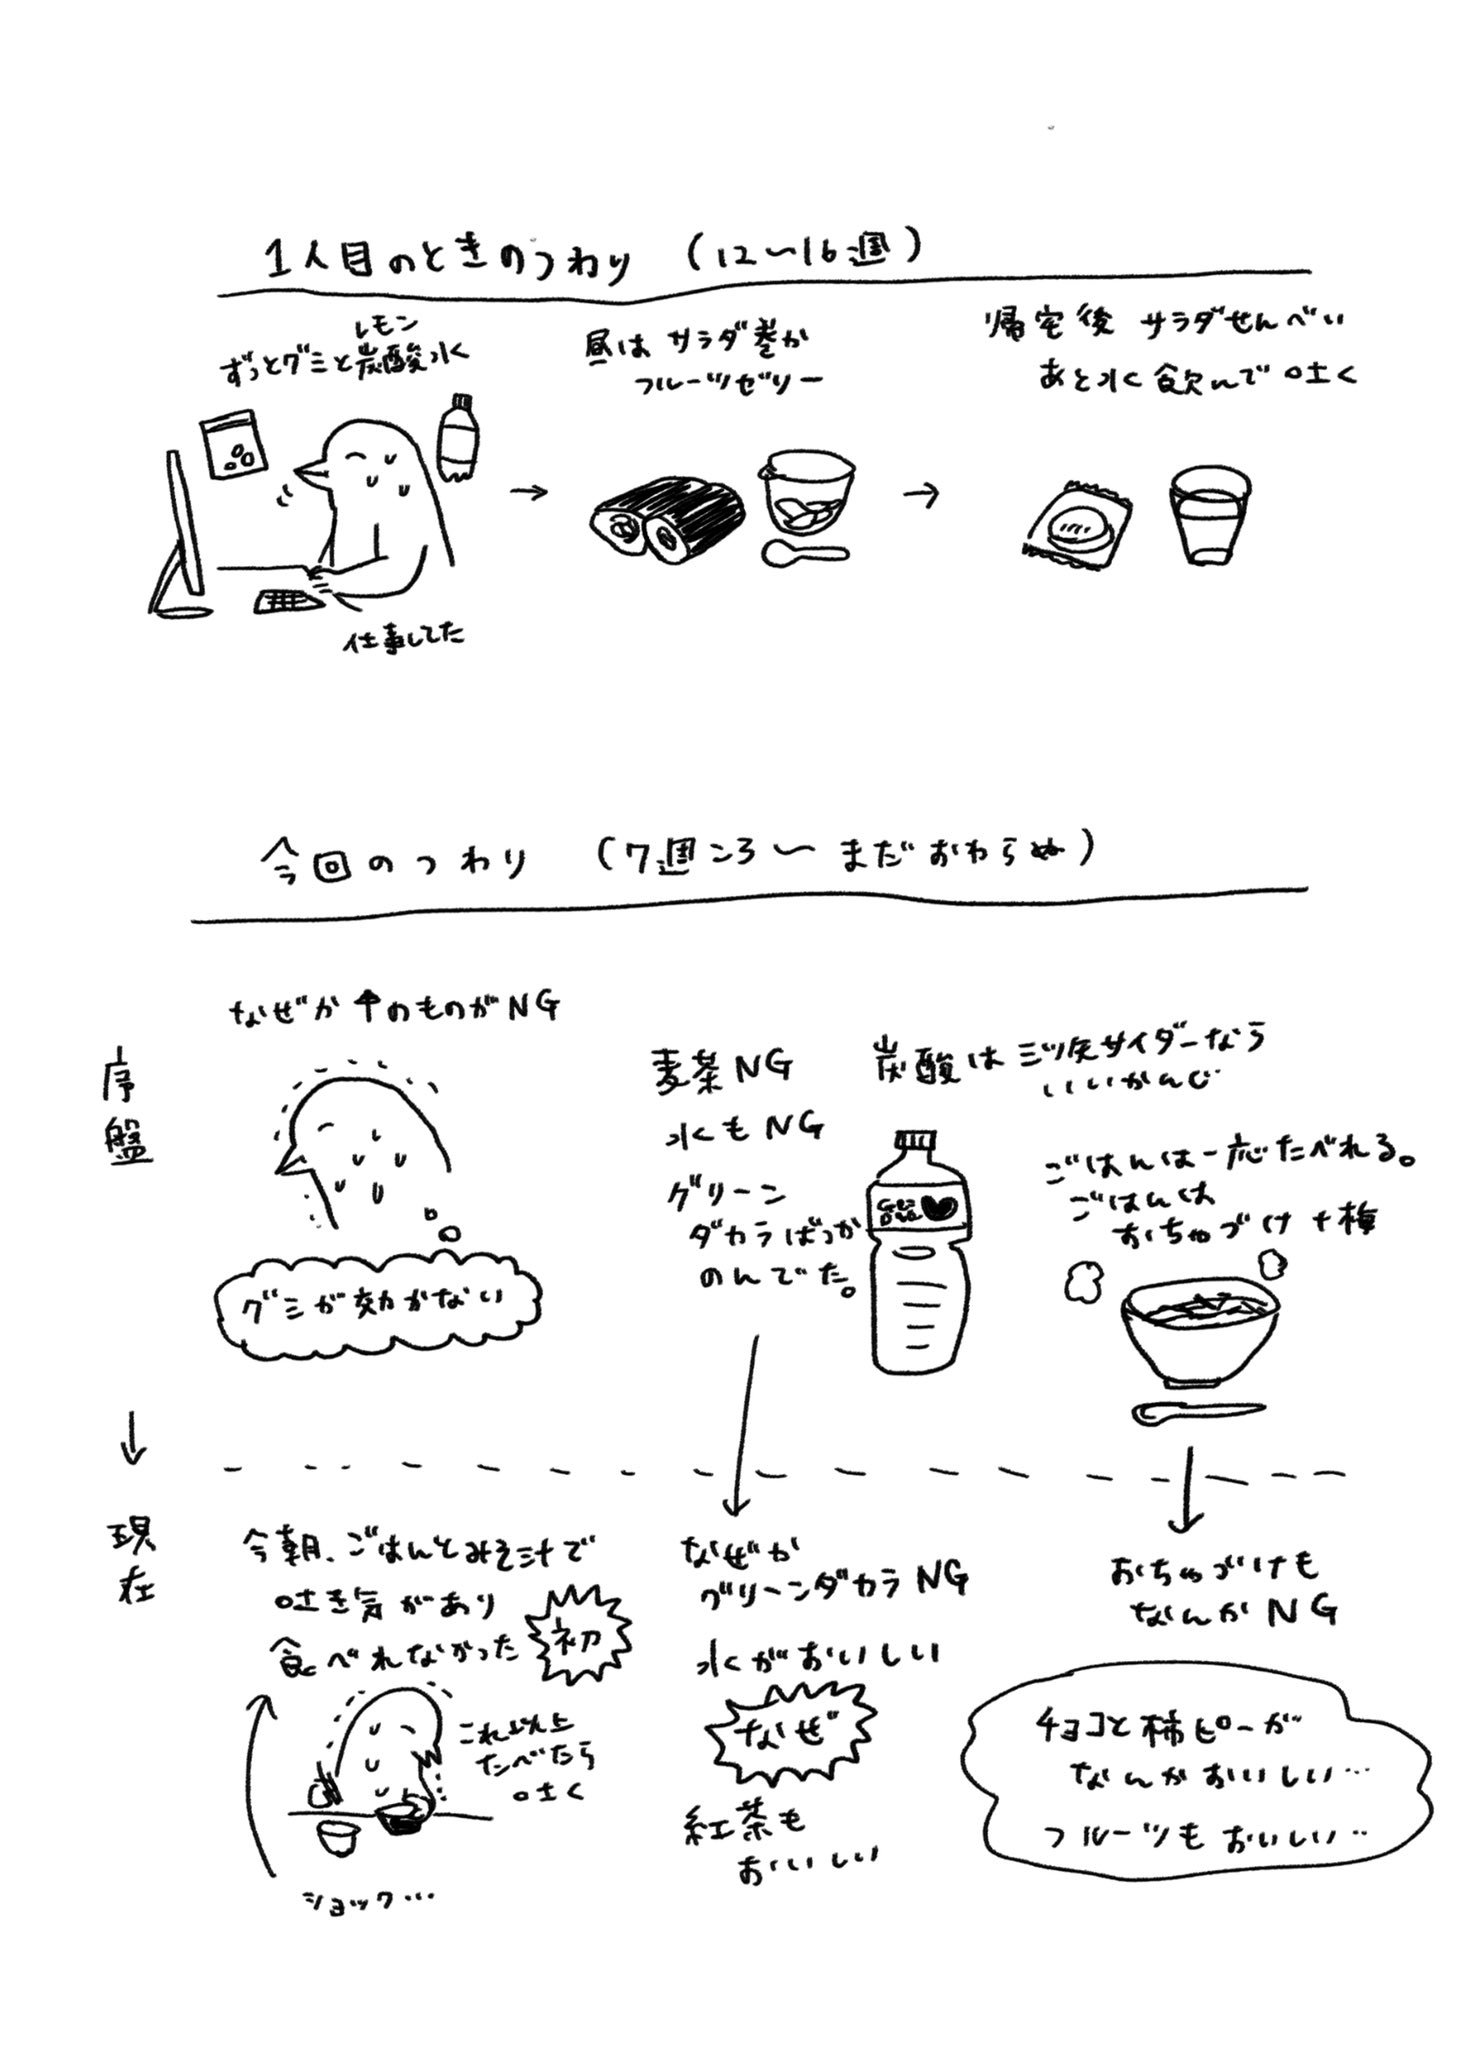 1人目のときのつわり (12〜16週)
レモン
ずっとグミと炭酸水
仕事してた
昼はサラダ巻か
フルーツゼリー
帰宅後 サラダせんべい
あと水飲んで吐く
今回のつわり (7週ころ〜まだおわらぬ)
序盤
なぜか↑のものがNG
グミが効かない
麦茶NG
水もNG
グリーン
ダカラばっか
のんでた。
炭酸は三ツ矢サイダーなら
いいかんじ
ごはんは一応たべれる。
ごはんは
おちゃづけ+梅
↓
現在
今朝、ごはんとみそ汁で
吐き気があり
食べれなかった
初
これ以上
たべたら
吐く
ショック…
なぜか
グリーンダカラNG
水がおいしい
なぜ
紅茶も
おいしい
おちゃづけも
なんかNG
チョコと柿ピーが
なんかおいしい…
フルーツもおいしい…